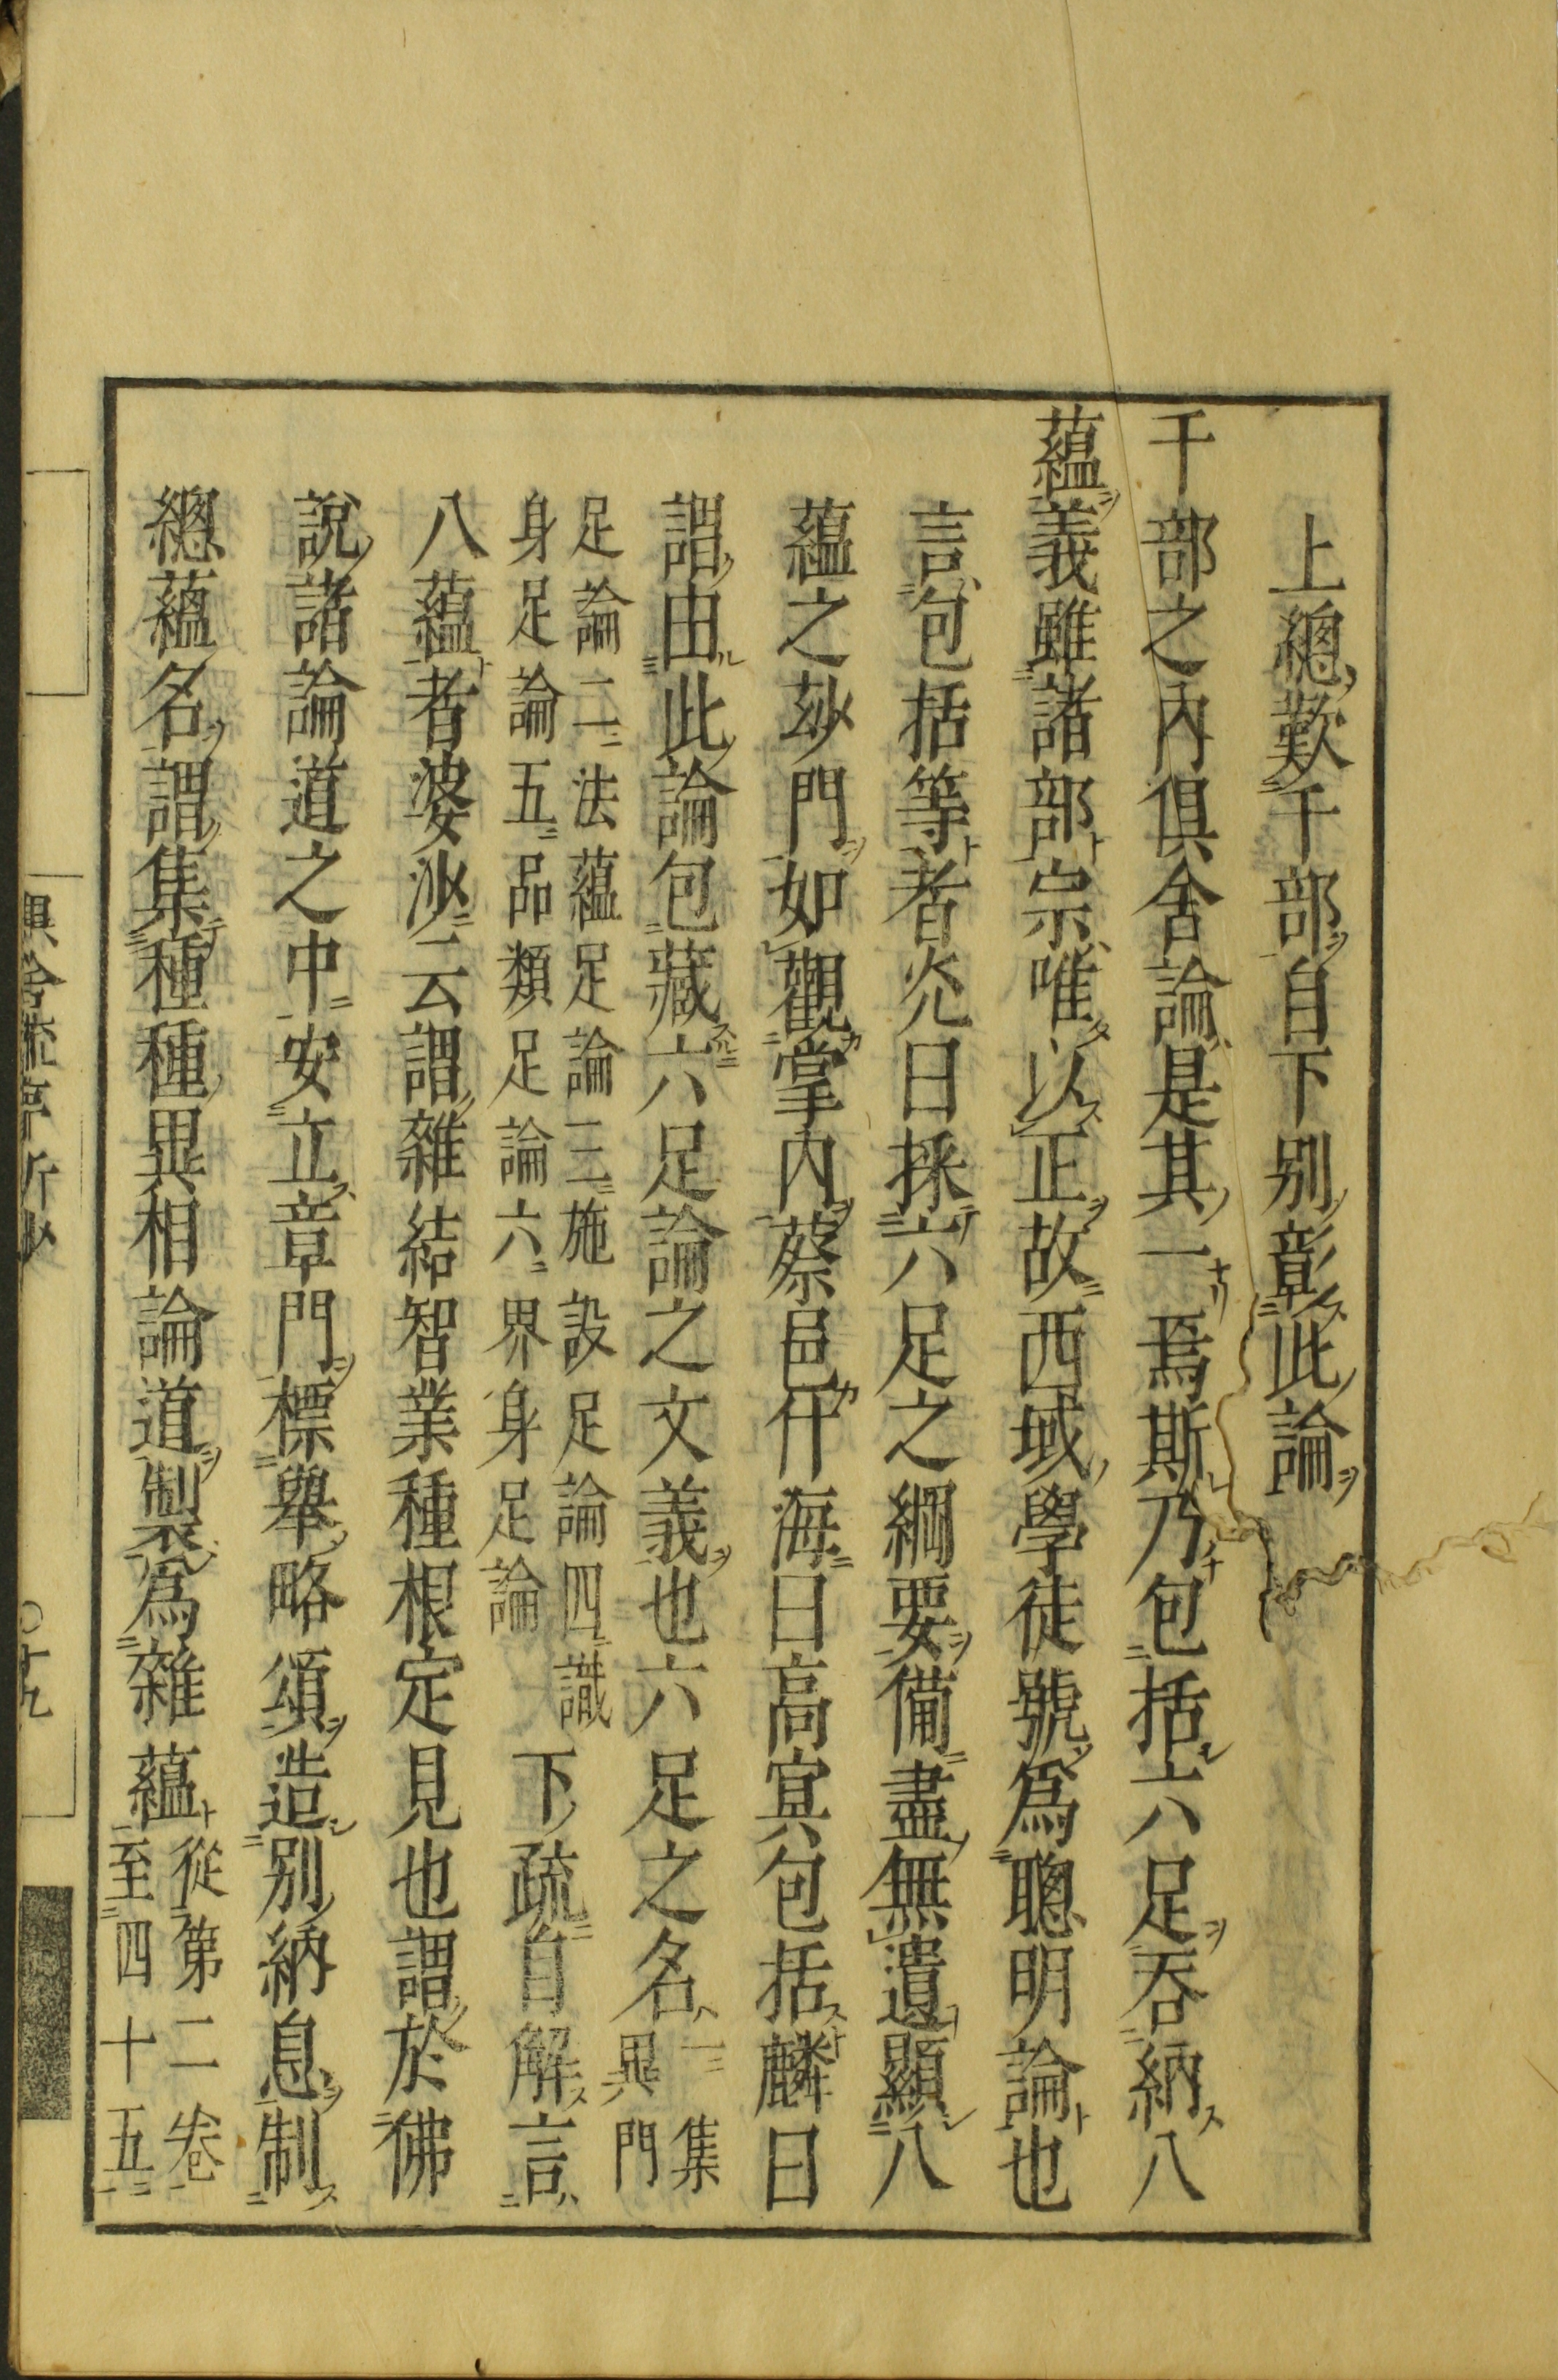 上總歎千部自下別彰此論
千部之內俱舍論是其一焉斯乃包括六足吞納八
蘊義雖諸部宗唯以正故西域學徒號爲聰明論也
言包括等者光曰採六足之綱要備盡無遺顯八
蘊之玅門如觀掌內蔡邕仆海曰高㝠包括麟曰
謂由此論包藏六足論之文義也六足之名一集異門
足論二法蘊足論三施設足論四識
身足論五品類足論六界身足論下疏自解言
八蘊者婆沙云謂雜結智業種根定見也謂於佛
說諸論道之中安立章門標舉略頌造別納息制
總蘊名謂集種種異相論道製爲雜蘊從第二卷至四十五